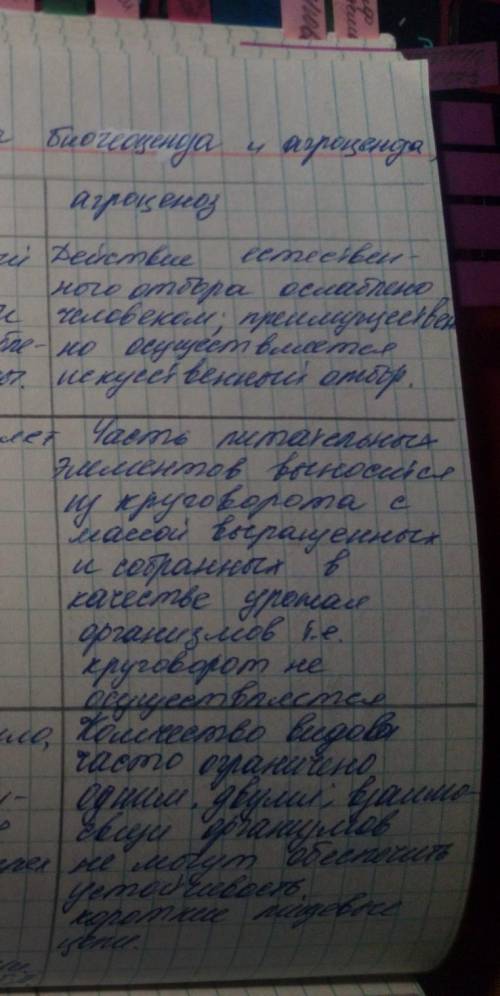 биогеоценоза и агроценоза,
агроценоз
Действие естествен-
ного отбора ослаблено
человеком; преимуществен
но осуществляется
искусственный отбор.
Часть питательных
элементов выносится
из круговорота с
массой выращенных
и собранных в
качестве урожая
организмов т.е.
круговорот не
осуществляется
Количество видов
часто ограничено
одним. двумя; взаимо-
связи организмов
не могут обеспечить
устойчивость
короткие пищевые
цепи.